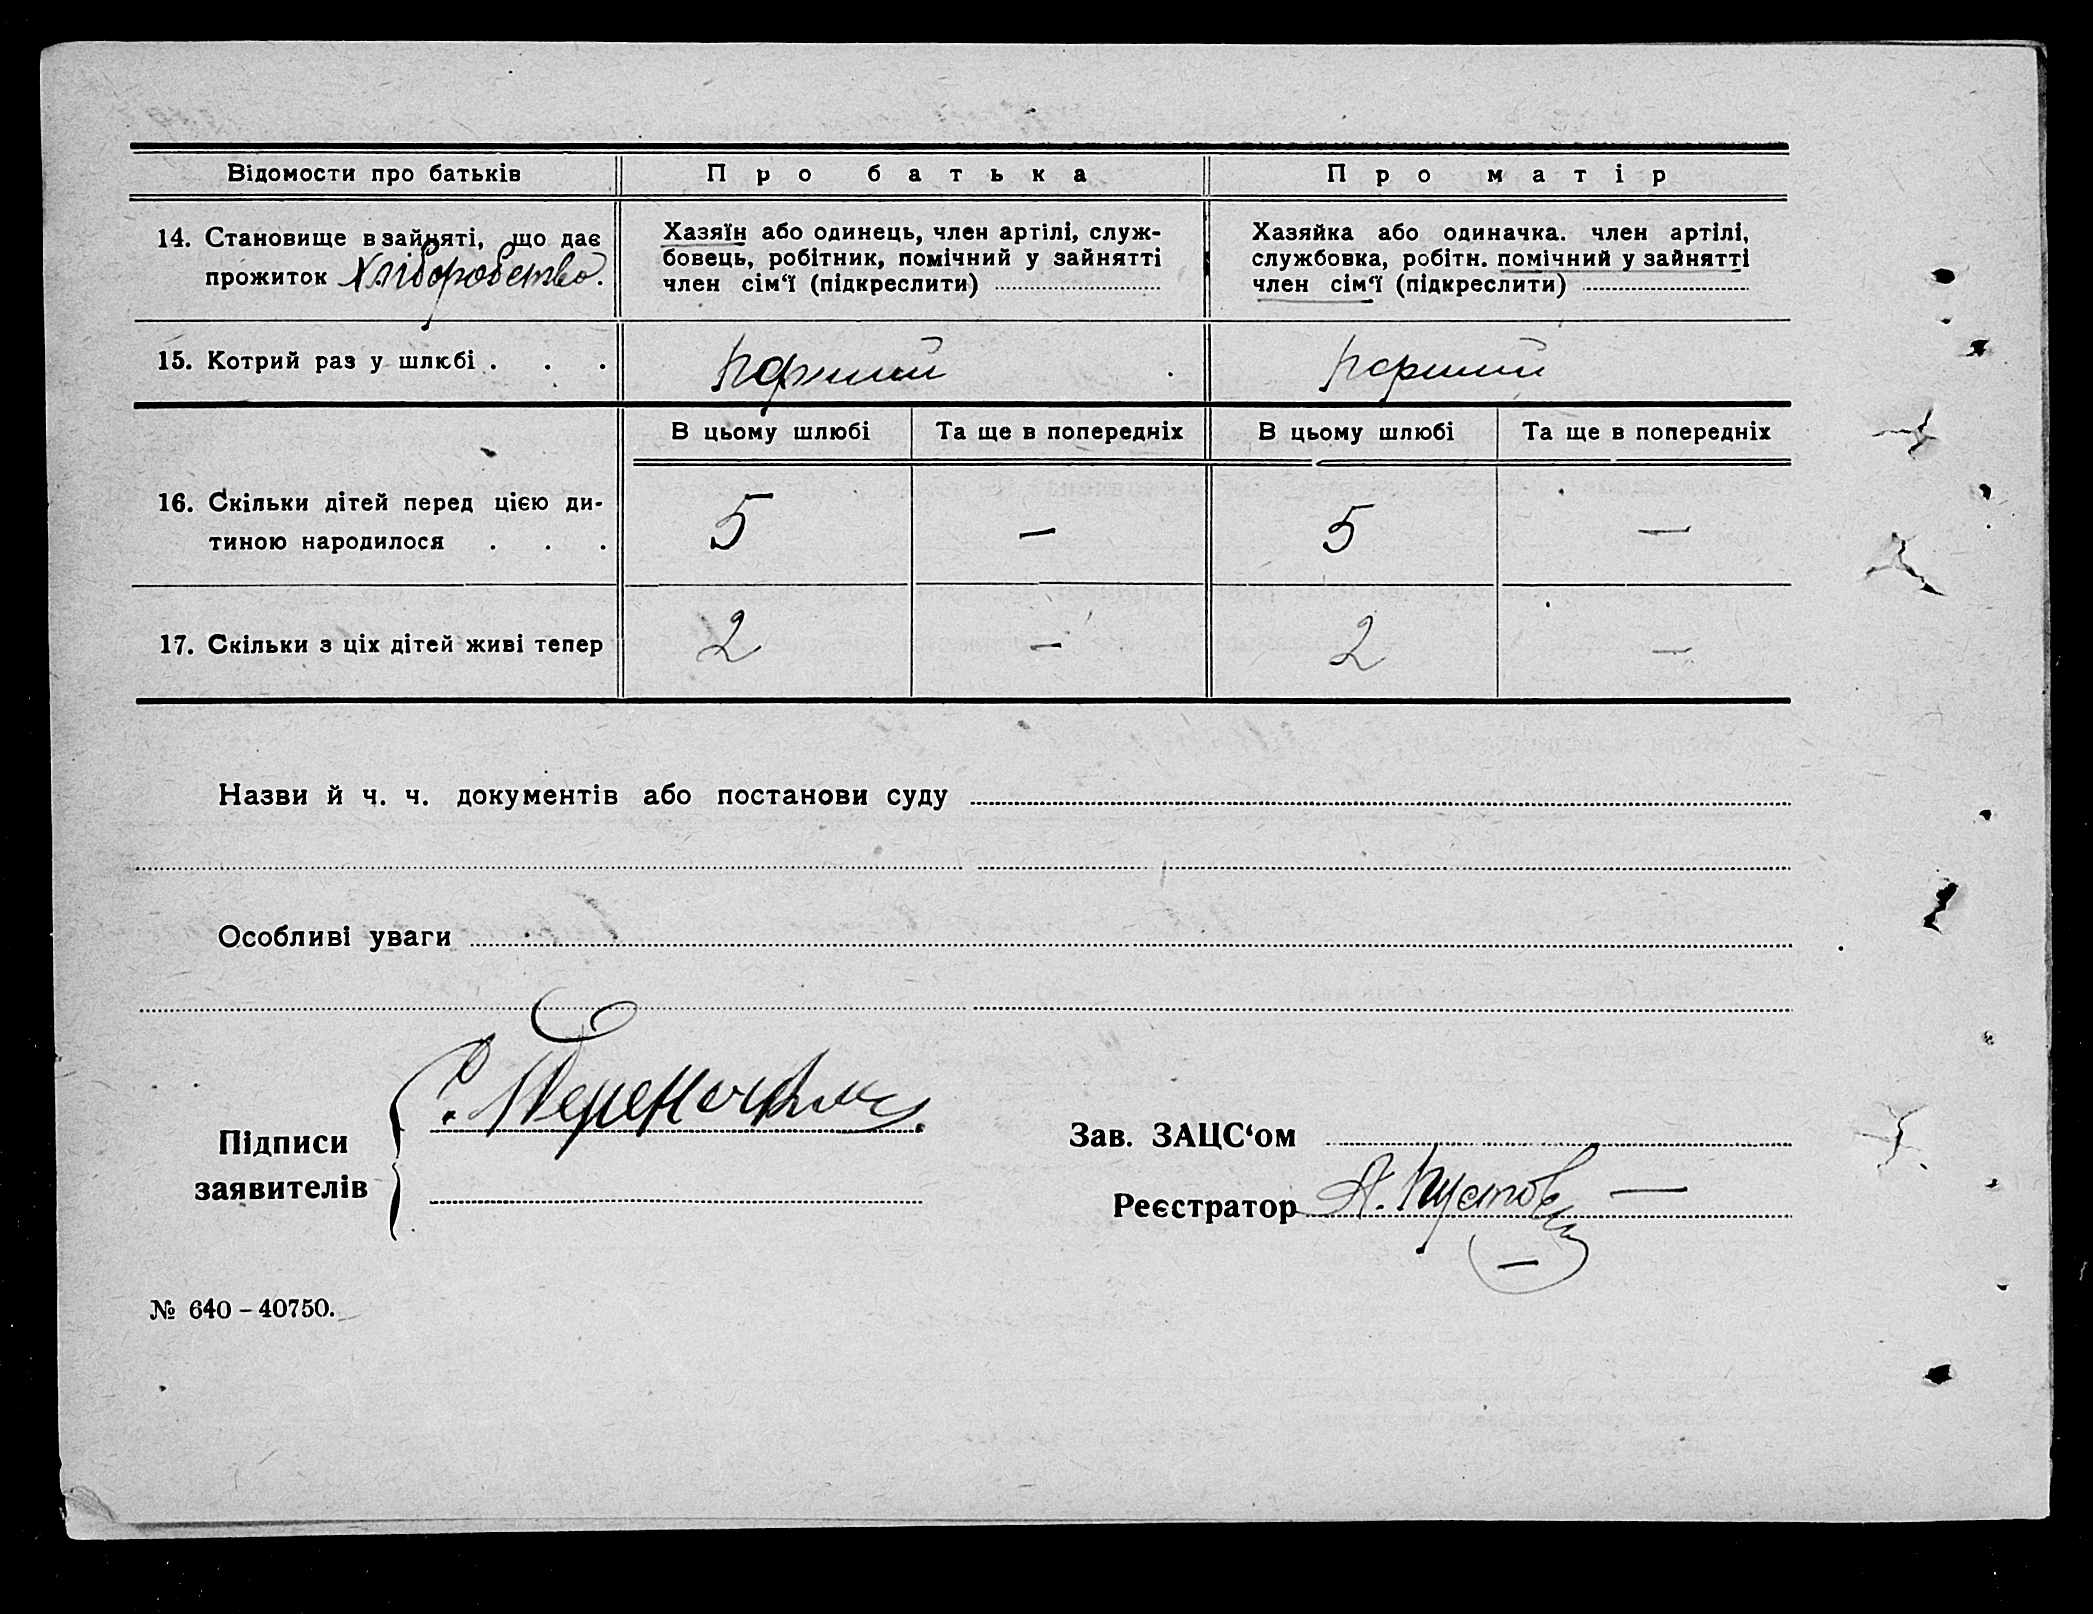 Відомости про батьків Про батька Про матір
14. Становище в зайняті, що дає
прожиток Хліборобство.
Хазяїн або одинець, член артілі, служ-
бовець, робітник, помічний у зайнятті
член сім‘ї (підкреслити)
Хазяйка або одиначка. член артілі,
службовка, робітн. помічний у зайнятті
член сім‘ї (підкреслити)
15. Котрий раз у шлюбі . . . перший перший
В цьому шлюбі Та ще в попередніх В цьому шлюбі Та ще в попередніх
16. Скільки дітей перед цією ди-
тиною народилося . . . 5 — 5 —
17. Скільки з ціх дітей живі тепер 2 — 2 —
Назви й ч. ч. документів або постанови суду
Особливі уваги
Підписи
заявителів
Зав. ЗАЦС‘ом
Реєстратор А.
№ 640–40750.